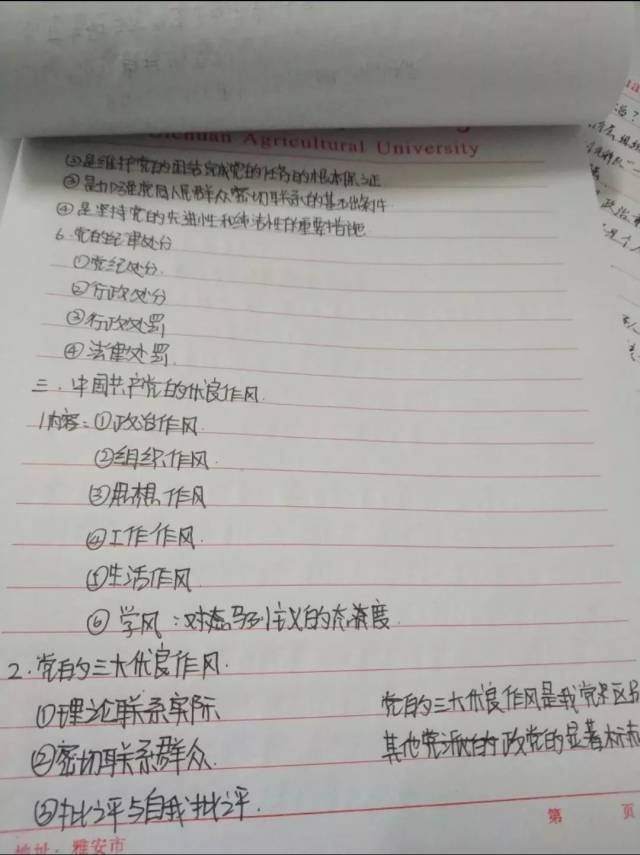 Sichuan Agricultural University
②是维护党的团结完成党的任务的根本保证
③是加强党同人民群众密切联系的基础条件
④是坚持党的先进性和纯洁性的重要措施
6.党的纪律处分
①党纪处分.
②行政处分
③行政处罚
④法律处罚.
三.中国共产党的优良作风.
1内容:①政治作风.
②组织作风.
③思想作风
④工作作风.
⑤生活作风.
⑥学风:对态马列主义的态度.
2.党的三大优良作风.
①理论联系实际
②密切联系群众.
③批评与自我批评.
党的三大优良作风是我党区别
其他党派的政党的显著标志
第 页
地址:雅安市